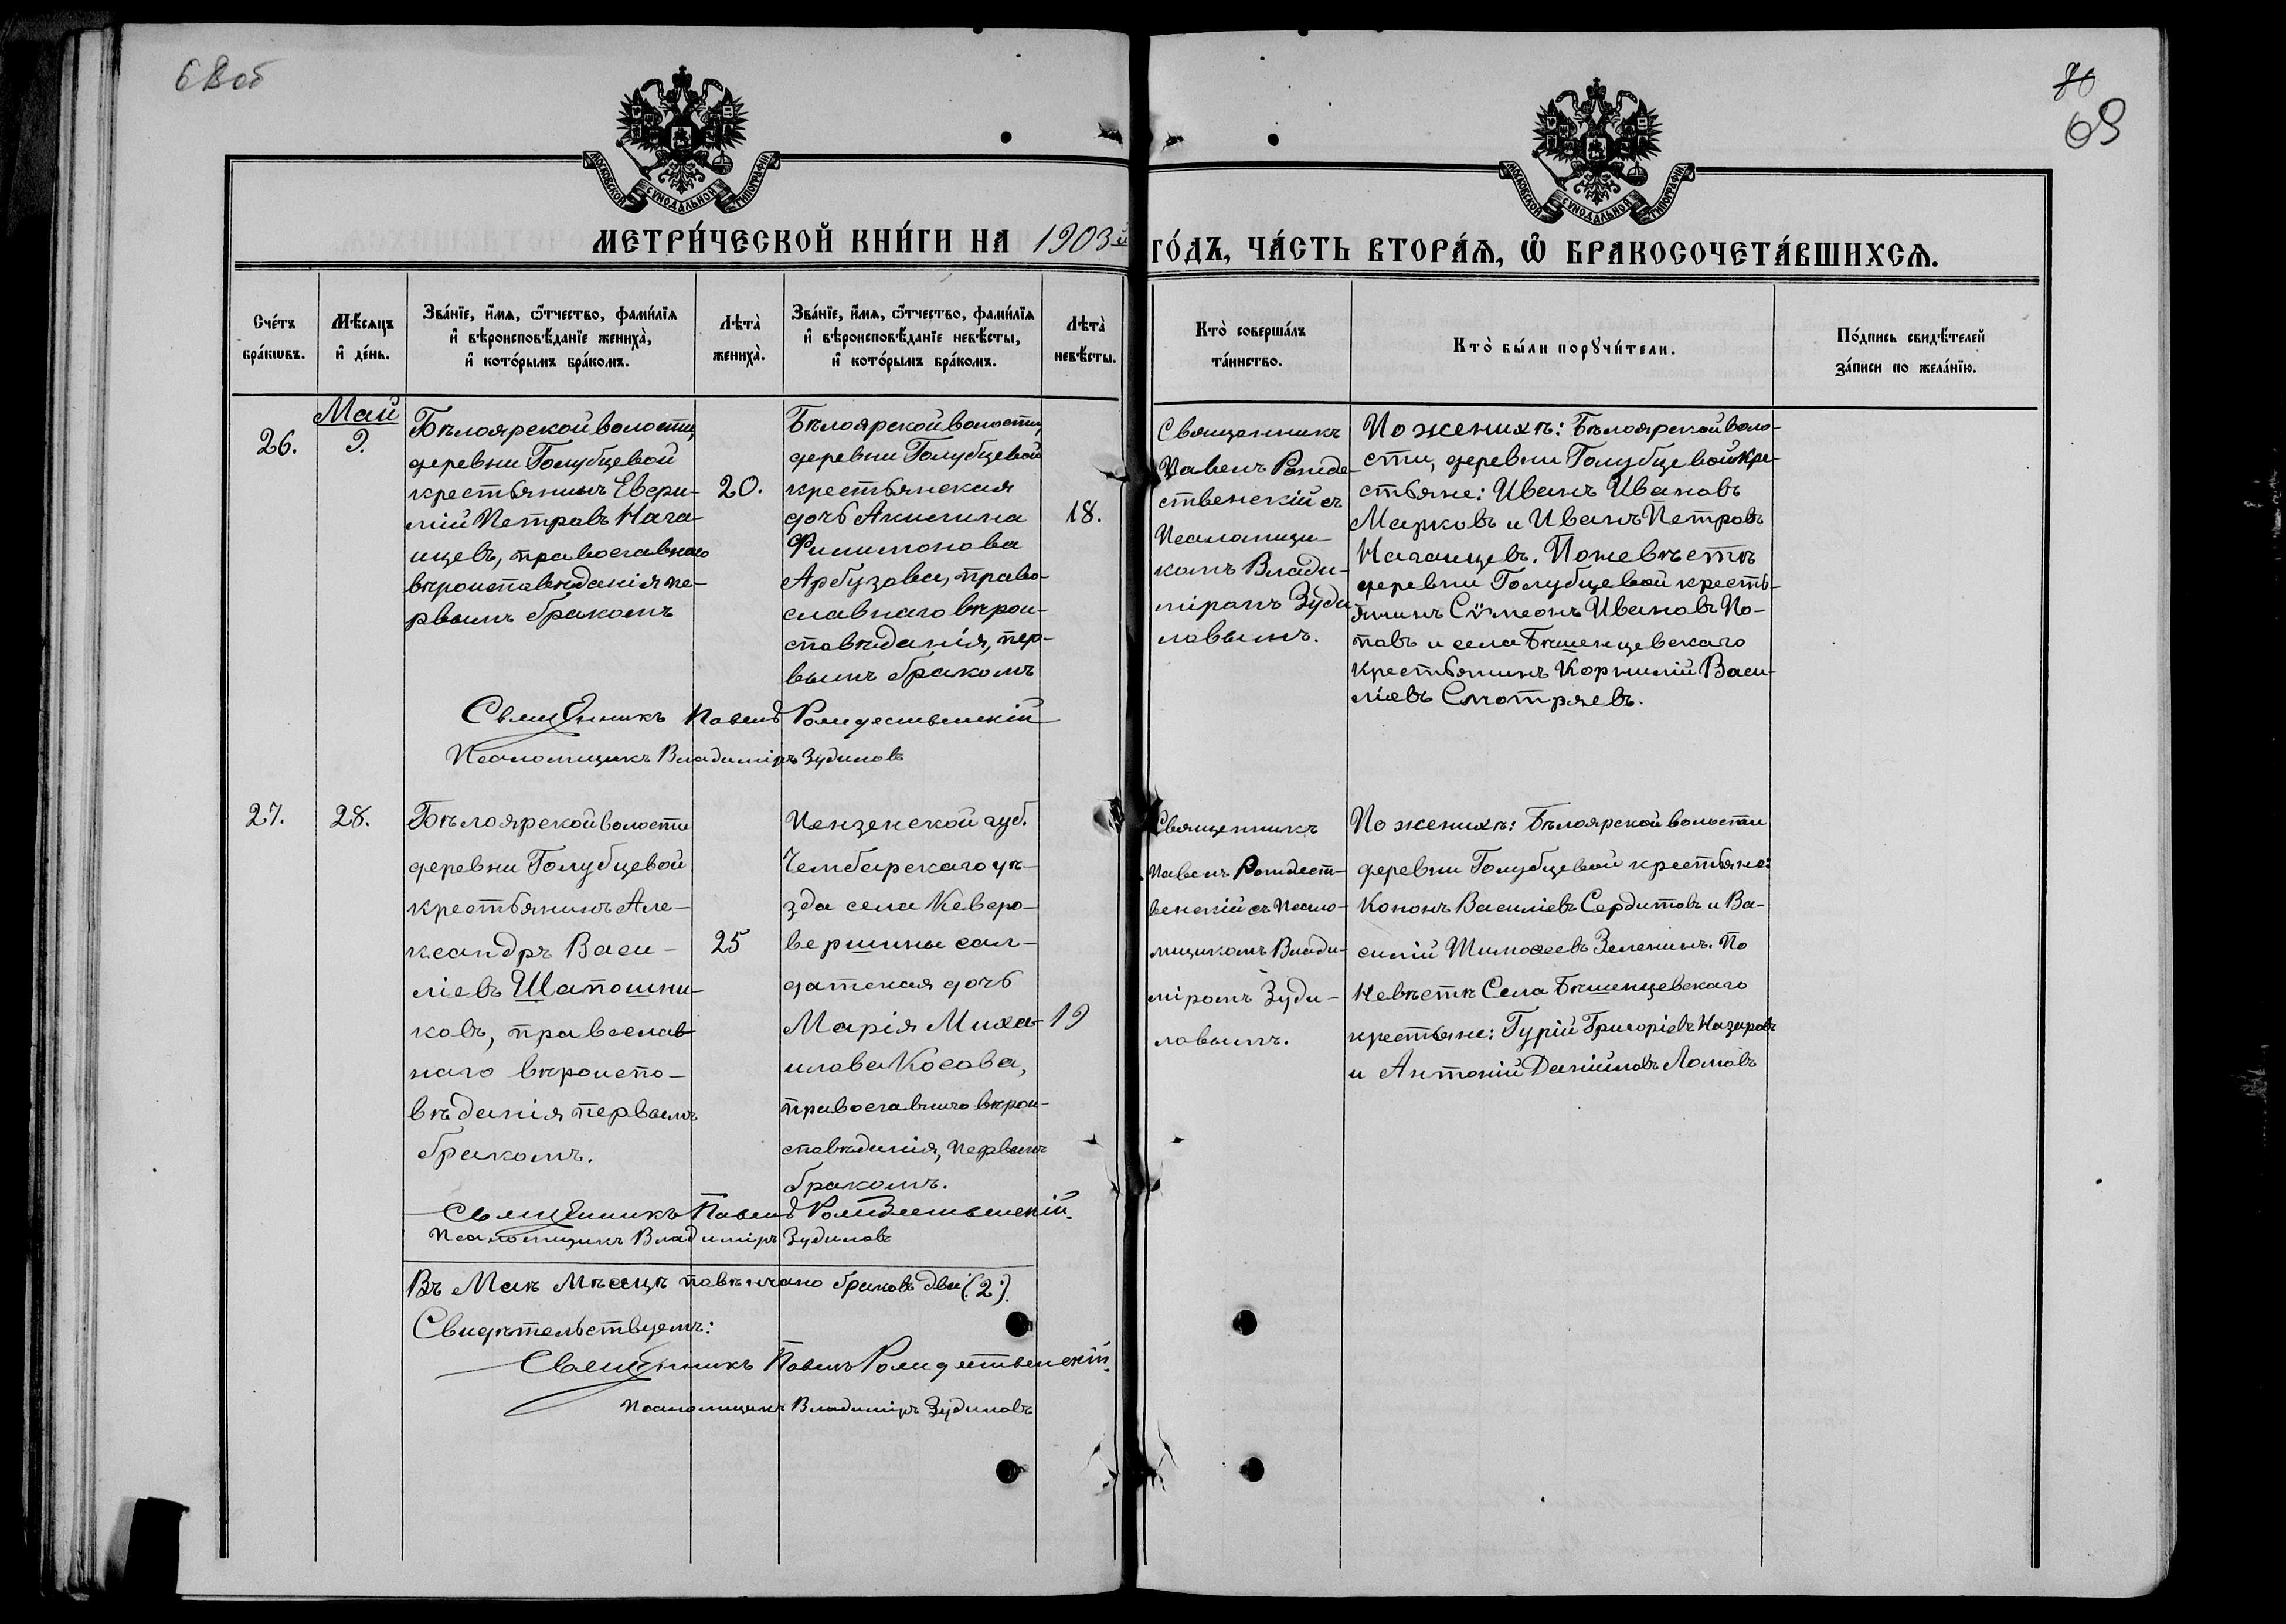 68об
70
69
МОСКОВСКОЙ СУНОДАЛЬНОЙ ТИПОГРАФІИ
МОСКОВСКОЙ СУНОДАЛЬНОЙ ТИПОГРАФІИ
МЕТРИ́ЧЕСКОЙ КНИ́ГИ НА 1903й ГО́ДЪ, ЧА́СТЬ ВТОРА́Ѧ, Ѽ БРАКОСОЧЕТА́ВШИХСѦ.
Сче́тъ
бра́кѡвъ.
Мѣ́сяцъ
и҆ де́нь.
Зва́нїе, и҆́мѧ, ѻ҆́тчество, фами́лїѧ
и҆ вѣроисповѣ́данїе жениха̀,
и҆ кото́рымъ бра́комъ.
Лѣта̀
жениха̀.
Зва́нїе, и҆́мѧ, ѻ҆́тчество, фами́лїѧ
и҆ вѣроисповѣ́данїе невѣ́сты,
и҆ кото́рымъ бра́комъ.
Лѣта̀
невѣ́сты.
Кто̀ соверша́лъ
та́инство.
Кто̀ бы́ли порꙋчи́тели.
По́дпись свидѣ́телей
за́писи по жела́нїю.
26.
Май
9.
Бѣлоярской волости,
деревни Голубцевой
крестьянинъ Евѳи-
мій Петровъ Нага-
ицевъ, православнаго
вѣроисповѣданія пе-
рвымъ бракомъ
20.
Бѣлоярской волости,
деревни Голубцевой
крестьянская
дочь Акилина
Филимонова
Арбузова, право-
славнаго вѣрои-
сповѣданія, пер-
вымъ бракомъ
18.
Священникъ
Павелъ Рожде-
ственскій съ
Псаломщи-
комъ Влади-
міромъ Зуди
ловымъ.
По женихѣ: Бѣлоярской воло-
сти, деревни Голубцевой кре-
стьяне: Иванъ Ивановъ
Марковъ и Иванъ Петровъ
Нагаицевъ. По невѣстѣ
деревни Голубцевой кресть-
янинъ Сѵмеонъ Ивановъ По-
повъ и села Бѣшенцевскаго
крестьянинъ Корнилій Васи-
ліевъ Смотряевъ.
Священникъ Павелъ Рождественскій
Псаломщикъ Владиміръ Зудиловъ
27.
28.
Бѣлоярской волости
деревни Голубцевой
крестьянинъ Але-
ксандръ Васи-
ліевъ Шапошни-
ковъ, православ
наго вѣроиспо-
вѣданія первымъ
бракомъ.
25
Пензенской губ.
Чембарскаго уѣ-
зда села Кевро-
вершины сол-
датская дочь
Марія Миха-
илова Косова,
православнаго вѣрои-
сповѣданія, первымъ
бракомъ.
19
Священникъ
Павелъ Рождест-
венскій съ Псало-
мщикомъ Влади-
міромъ Зуди-
ловымъ.
По женихѣ: Бѣлоярской волости
деревни Голубцевой крестьяне:
Кононъ Василіевъ Сердитовъ и Ва-
силій Тимоѳеевъ Зеленинъ. По
Невѣстѣ Села Бѣшенцевскаго
крестьяне: Гурій Григоріевъ Назаровъ
и Антоній Даніиловъ Ломовъ
Священникъ Павелъ Рождественскій.
Псаломщикъ Владиміръ Зудиловъ
Въ Маѣ Мѣсяцѣ повѣнчано браковъ два (2).
Свидѣтельствуемъ:
Священникъ Павелъ Рождественскій.
Псаломщикъ Владиміръ Зудиловъ